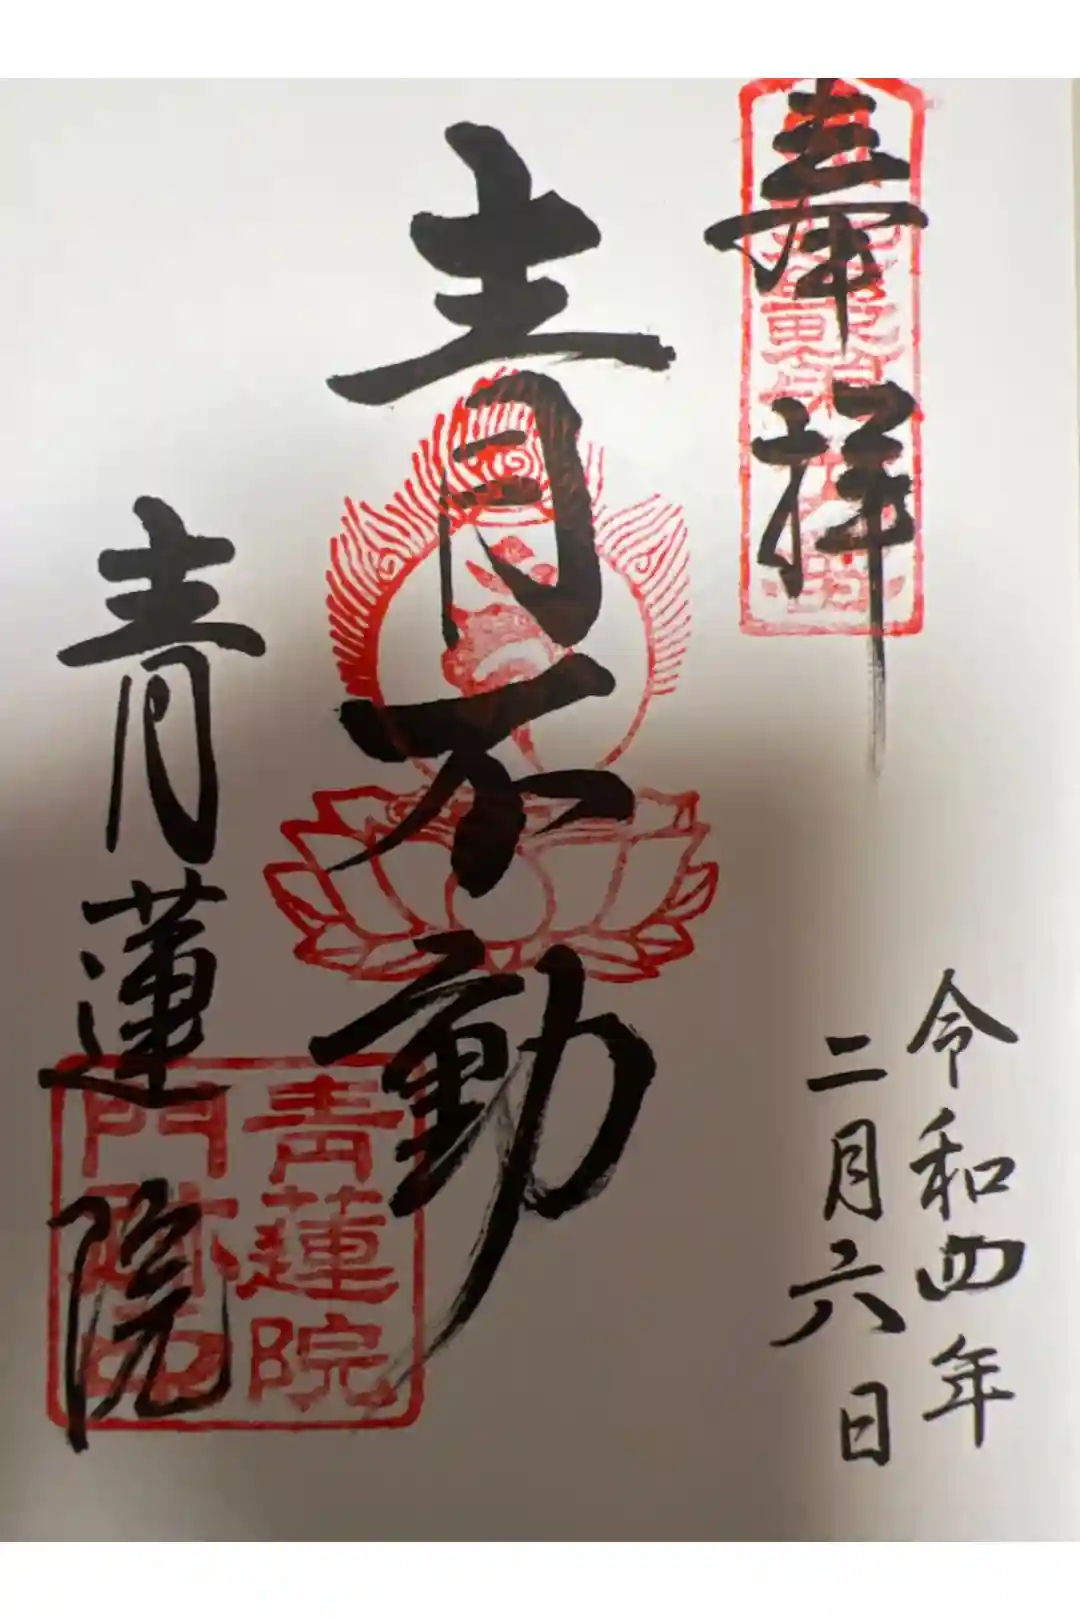 奉拝
令和四年
二月六日
青不動
青蓮院
青蓮院
門跡印